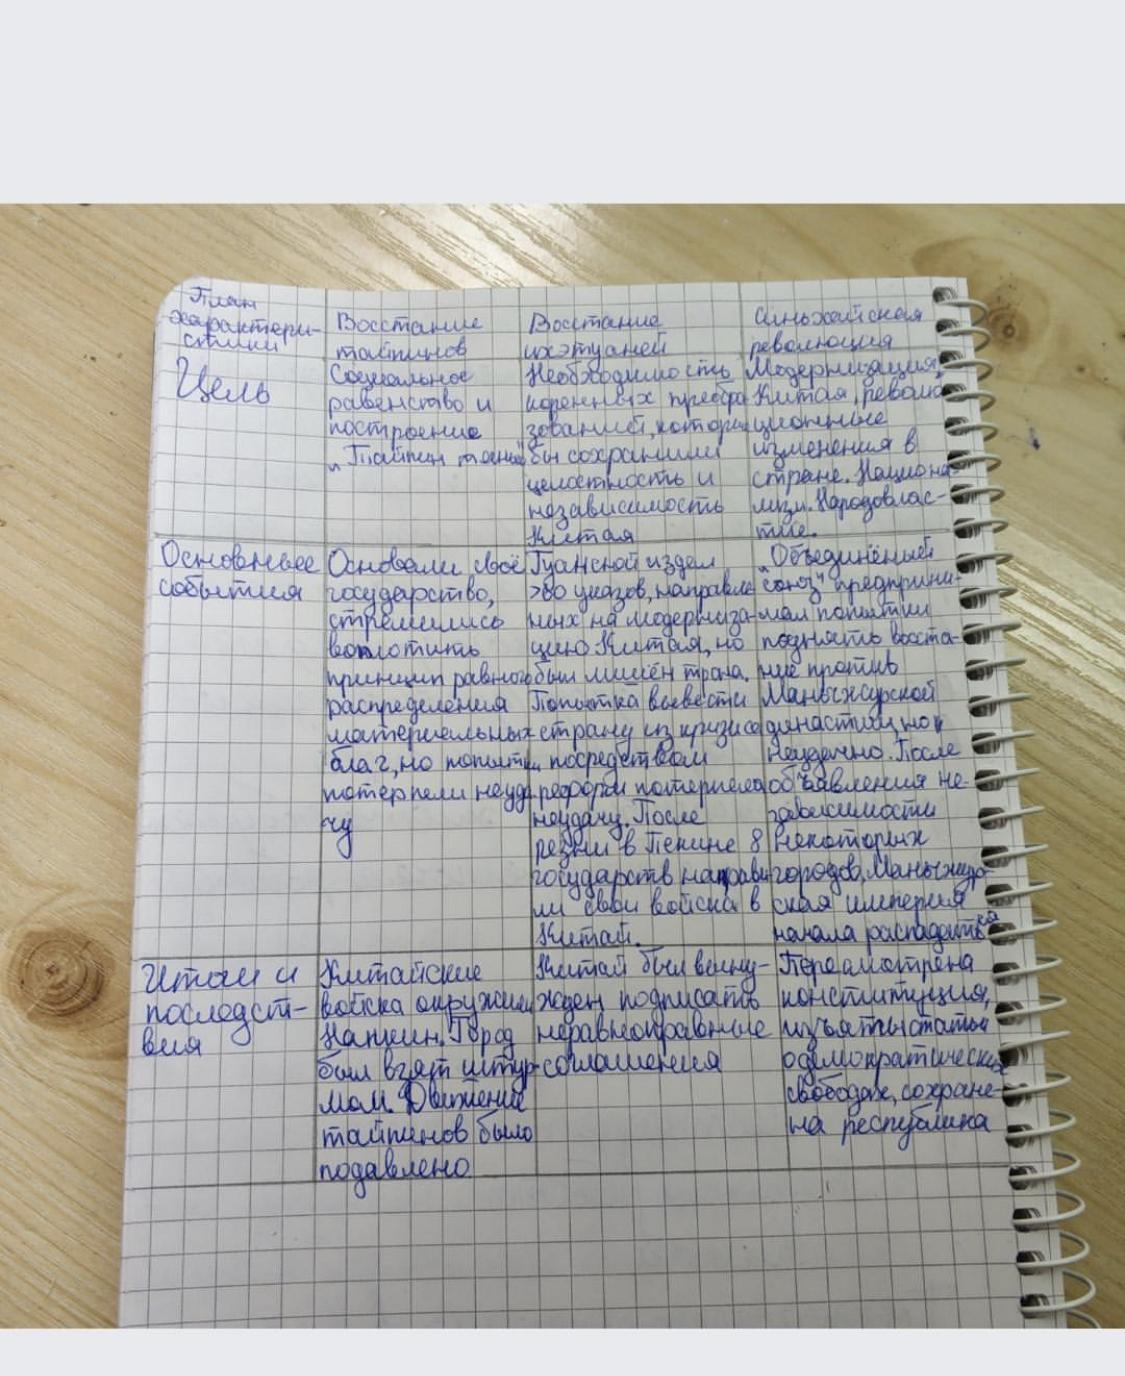 План
характери-
стики
Восстание
тайпинов
Восстание
ихэтуаней
Синьхайская
революция
Цель
Социальное
равенство и
построение
"Тайпин тяньго"
Необходимость
коренных преобра
зований, которые
бы сохранили
целостность и
независимость
Китая
Модернизация
Китая, револю
ционные
изменения в
стране. Национа-
лизм. Народовлас-
тие.
Основные
события
Основали своё
государство,
стремились
воплотить
принцип равного
распределения
материальных
благ, но попытки
потерпели неуда
чу
Гуансюй издал
>60 указов, направлен
ных на модерниза-
цию Китая, но
был лишён трона.
Попытка вывести
страну из кризиса
посредством
реформ потерпела
неудачу. После
резни в Пекине 8
государств направи
ли свои войска в
Китай.
"Объединённый
союз" предприни-
мал попытки
поднять восста-
ние против
Маньчжурской
династии, но
неудачно. После
объявления не-
зависимости
некоторых
городов, Маньчжур-
ская империя
начала распадаться
Итоги и
последст-
вия
Китайские
войска окружили
Нанкин. Город
был взят штур-
мом. Движение
тайпинов было
подавлено
Китай был вынуж-
жден подписать
неравноправные
соглашения
Пересмотрена
конституция,
изъяты статьи
о демократических
свободах, сохране-
на республика